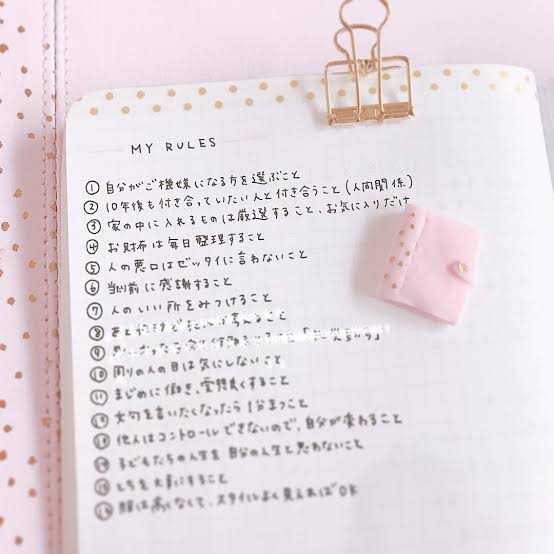 MY RULES
① 自分がご機嫌になる方を選ぶこと
② 10年後も付き合っていたい人と付き合うこと(人間関係)
③ 家の中に入れるものは厳選すること、お気に入りだけ
④ お財布は毎日整理すること
⑤ 人の悪口はゼッタイに言わないこと
⑥ 当たり前に感謝すること
⑦ 人のいい所をみつけること
⑧ 考えること
⑨
⑩ 周りの人の目は気にしないこと
⑪ まじめに働き、すること
⑫ 文句を言いたくなったら1分まつこと
⑬ 他人はコントロールできないので、自分が変わること
⑭ 子どもたちの人生を自分の人生と思わないこと
⑮ を大事にすること
⑯ 服は高くなくて、スタイルよく見えればOK